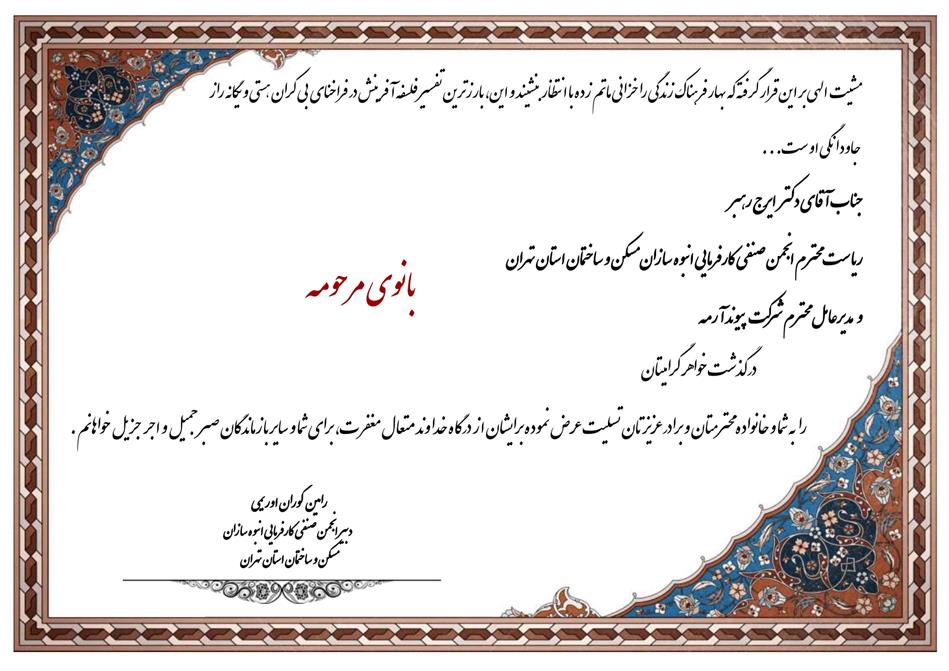 مشیت الهی بر این قرار گرفته که بهار فرهناک زندگی را خزانی ماتم زده با انتظار بنشیند و این، بارزترین تفسیر فلسفه آفرینش در فراخنای بی کران هستی و یگانه راز
جاودانگی اوست...
جناب آقای دکتر ایرج رهبر
ریاست محترم انجمن صنفی کارفرمایی انبوه سازان مسکن و ساختمان استان تهران
و مدیرعامل محترم شرکت پیوند آرمه
درگذشت خواهر گرامیتان
بانوی مرحومه
را به شما و خانواده محترمتان و برادر عزیزتان تسلیت عرض نموده برایشان از درگاه خداوند متعال مغفرت، برای شما و سایر بازماندگان صبر جمیل و اجر جزیل خواهانم.
رامین گوران اوریمی
دبیر انجمن صنفی کارفرمایی انبوه سازان
مسکن و ساختمان استان تهران